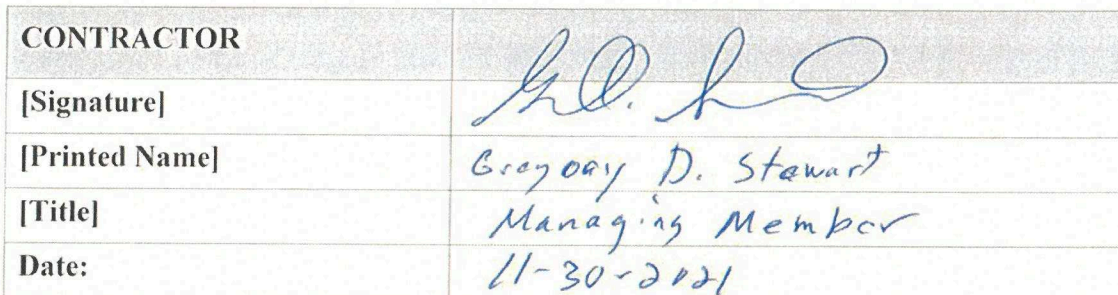 CONTRACTOR
[Signature]
[Printed Name] Gregory D. Stewart
[Title] Managing Member
Date: 11-30-2021